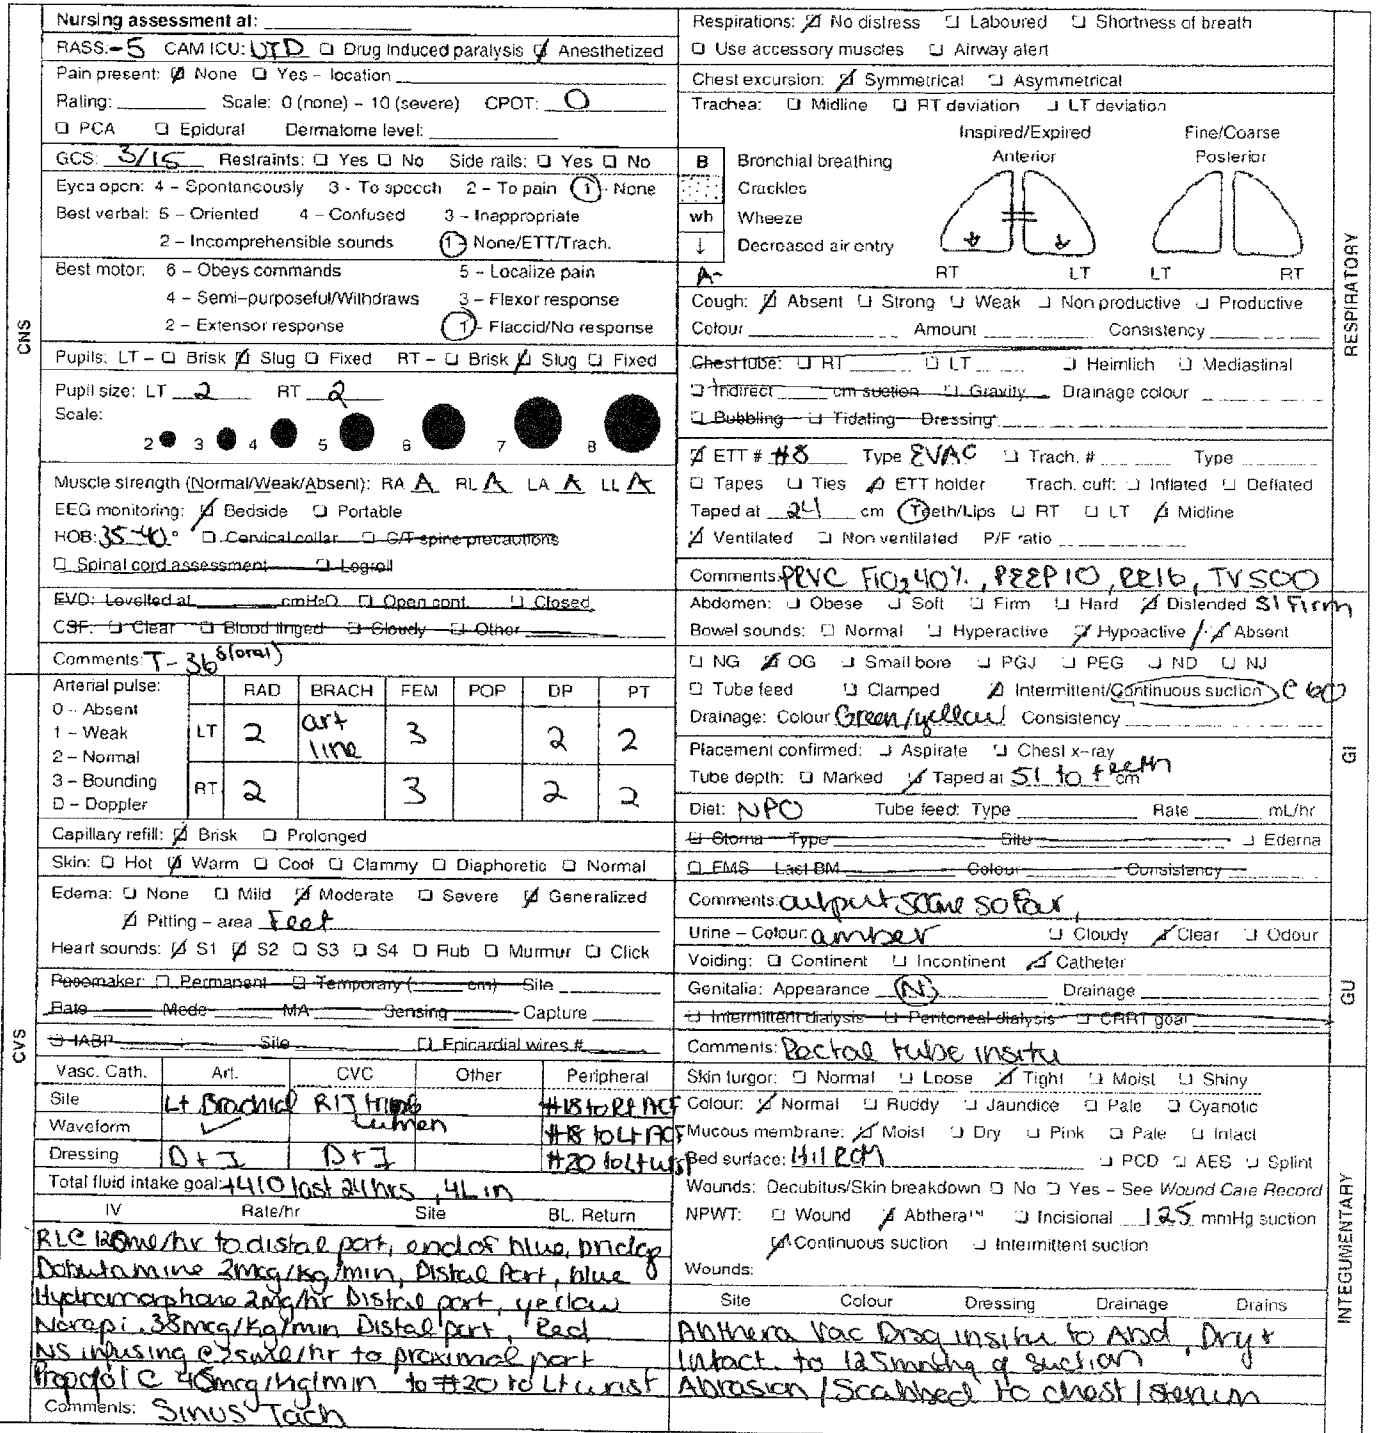 Nursing assessment at:
RASS: -5 CAM ICU: UTD ☐ Drug induced paralysis ☑ Anesthetized
Pain present: ☑ None ☐ Yes – location
Rating: Scale: 0 (none) – 10 (severe) CPOT: 0
☐ PCA ☐ Epidural Dermatome level:
GCS: 3/15 Restraints: ☐ Yes ☐ No Side rails: ☐ Yes ☐ No
Eyes open: 4 – Spontaneously 3 - To speech 2 – To pain 1 - None
Best verbal: 5 – Oriented 4 – Confused 3 – Inappropriate
2 – Incomprehensible sounds 1 - None/ETT/Trach.
Best motor: 6 – Obeys commands 5 – Localize pain
4 – Semi-purposeful/Withdraws 3 – Flexor response
2 – Extensor response 1 - Flaccid/No response
Pupils: LT – ☐ Brisk ☑ Slug ☐ Fixed RT – ☐ Brisk ☑ Slug ☐ Fixed
Pupil size: LT 2 RT 2
Scale:
2 3 4 5 6 7 8
Muscle strength (Normal/Weak/Absent): RA A RL A LA A LL A
EEG monitoring: ☑ Bedside ☐ Portable
HOB: 35-40° ☐ Cervical collar ☐ C/T spine precautions
☐ Spinal cord assessment ☐ Logroll
EVD: Levelled at cmH2O ☐ Open cont. ☐ Closed
CSF: ☐ Clear ☐ Blood tinged ☐ Cloudy ☐ Other
Comments: T- 36⁵ (oral)
CNS
Arterial pulse: RAD BRACH FEM POP DP PT
0 – Absent
1 – Weak LT 2 art line 3 2 2
2 – Normal
3 – Bounding RT 2 3 2 2
D – Doppler
Capillary refill: ☑ Brisk ☐ Prolonged
Skin: ☐ Hot ☑ Warm ☐ Cool ☐ Clammy ☐ Diaphoretic ☐ Normal
Edema: ☐ None ☐ Mild ☑ Moderate ☐ Severe ☑ Generalized
☑ Pitting – area Feet
Heart sounds: ☑ S1 ☑ S2 ☐ S3 ☐ S4 ☐ Rub ☐ Murmur ☐ Click
Pacemaker: ☐ Permanent ☐ Temporary ( cm) Site
Rate Mode MA Sensing Capture
☐ IABP : Site ☐ Epicardial wires #
CVS
Vasc. Cath. Art. CVC Other Peripheral
Site Lt Brachial RIJ triple Lumen #18 to Rt ACF
Waveform ✓ #18 to Lt ACF
Dressing D+I D+I #20 to Lt wrist
Total fluid intake goal: +410 last 24hrs, 4L in
IV Rate/hr Site BL. Return
RLC 120ml/hr to distal port, end of blue, bridge
Dobutamine 2mcg/kg/min, Distal Port, blue
Hydromorphone 2mg/hr Distal port, yellow
Norepi .38mcg/kg/min Distal port, Red
NS infusing @ 25ml/hr to proximal port
Propofol @ 45mcg/kg/min to #20 to Lt wrist
Comments: Sinus Tach
Respirations: ☑ No distress ☐ Laboured ☐ Shortness of breath
☐ Use accessory muscles ☐ Airway alert
Chest excursion: ☑ Symmetrical ☐ Asymmetrical
Trachea: ☐ Midline ☐ RT deviation ☐ LT deviation
Inspired/Expired Fine/Coarse
B Bronchial breathing Anterior Posterior
Crackles
wh Wheeze
↓ Decreased air entry
A- RT LT LT RT
Cough: ☑ Absent ☐ Strong ☐ Weak ☐ Non productive ☐ Productive
Colour Amount Consistency
Chest tube: ☐ RT ☐ LT ☐ Heimlich ☐ Mediastinal
☐ Indirect cm suction ☐ Gravity Drainage colour
☐ Bubbling ☐ Tidating Dressing
☑ ETT # #8 Type EVAC ☐ Trach. # Type
☐ Tapes ☐ Ties ☑ ETT holder Trach. cuff: ☐ Inflated ☐ Deflated
Taped at 24 cm Teeth/Lips ☐ RT ☐ LT ☑ Midline
☑ Ventilated ☐ Non ventilated P/F ratio
Comments: PRVC FiO2 40%, PEEP 10, RR16, TV 500
RESPIRATORY
Abdomen: ☐ Obese ☐ Soft ☐ Firm ☐ Hard ☑ Distended Sl Firm
Bowel sounds: ☐ Normal ☐ Hyperactive ☑ Hypoactive / ☑ Absent
☐ NG ☑ OG ☐ Small bore ☐ PGJ ☐ PEG ☐ ND ☐ NJ
☐ Tube feed ☐ Clamped ☑ Intermittent/Continuous suction @ 60
Drainage: Colour Green/yellow Consistency
Placement confirmed: ☐ Aspirate ☐ Chest x-ray
Tube depth: ☐ Marked ☑ Taped at 51 to teeth cm
Diet: NPO Tube feed: Type Rate mL/hr
☐ Stoma Type Site ☐ Edema
☐ FMS Last BM Colour Consistency
Comments: output same so far,
GI
Urine – Colour: amber ☐ Cloudy ☑ Clear ☐ Odour
Voiding: ☐ Continent ☐ Incontinent ☑ Catheter
Genitalia: Appearance (N) Drainage
☐ Intermittent dialysis ☐ Peritoneal dialysis ☐ CRRT goal
Comments: Rectal tube insitu
GU
Skin turgor: ☐ Normal ☐ Loose ☑ Tight ☐ Moist ☐ Shiny
Colour: ☑ Normal ☐ Ruddy ☐ Jaundice ☐ Pale ☐ Cyanotic
Mucous membrane: ☑ Moist ☐ Dry ☐ Pink ☐ Pale ☐ Intact
Bed surface: Hil Rom ☐ PCD ☐ AES ☐ Splint
Wounds: Decubitus/Skin breakdown ☐ No ☐ Yes – See Wound Care Record
NPWT: ☐ Wound ☑ Abthera™ ☐ Incisional 125 mmHg suction
☑ Continuous suction ☐ Intermittent suction
Wounds:
Site Colour Dressing Drainage Drains
Abthera Vac Drsg insitu to Abd, Dry +
Intact. to 125mmhg of suction
Abrasion / Scabbed to chest / sternum
INTEGUMENTARY